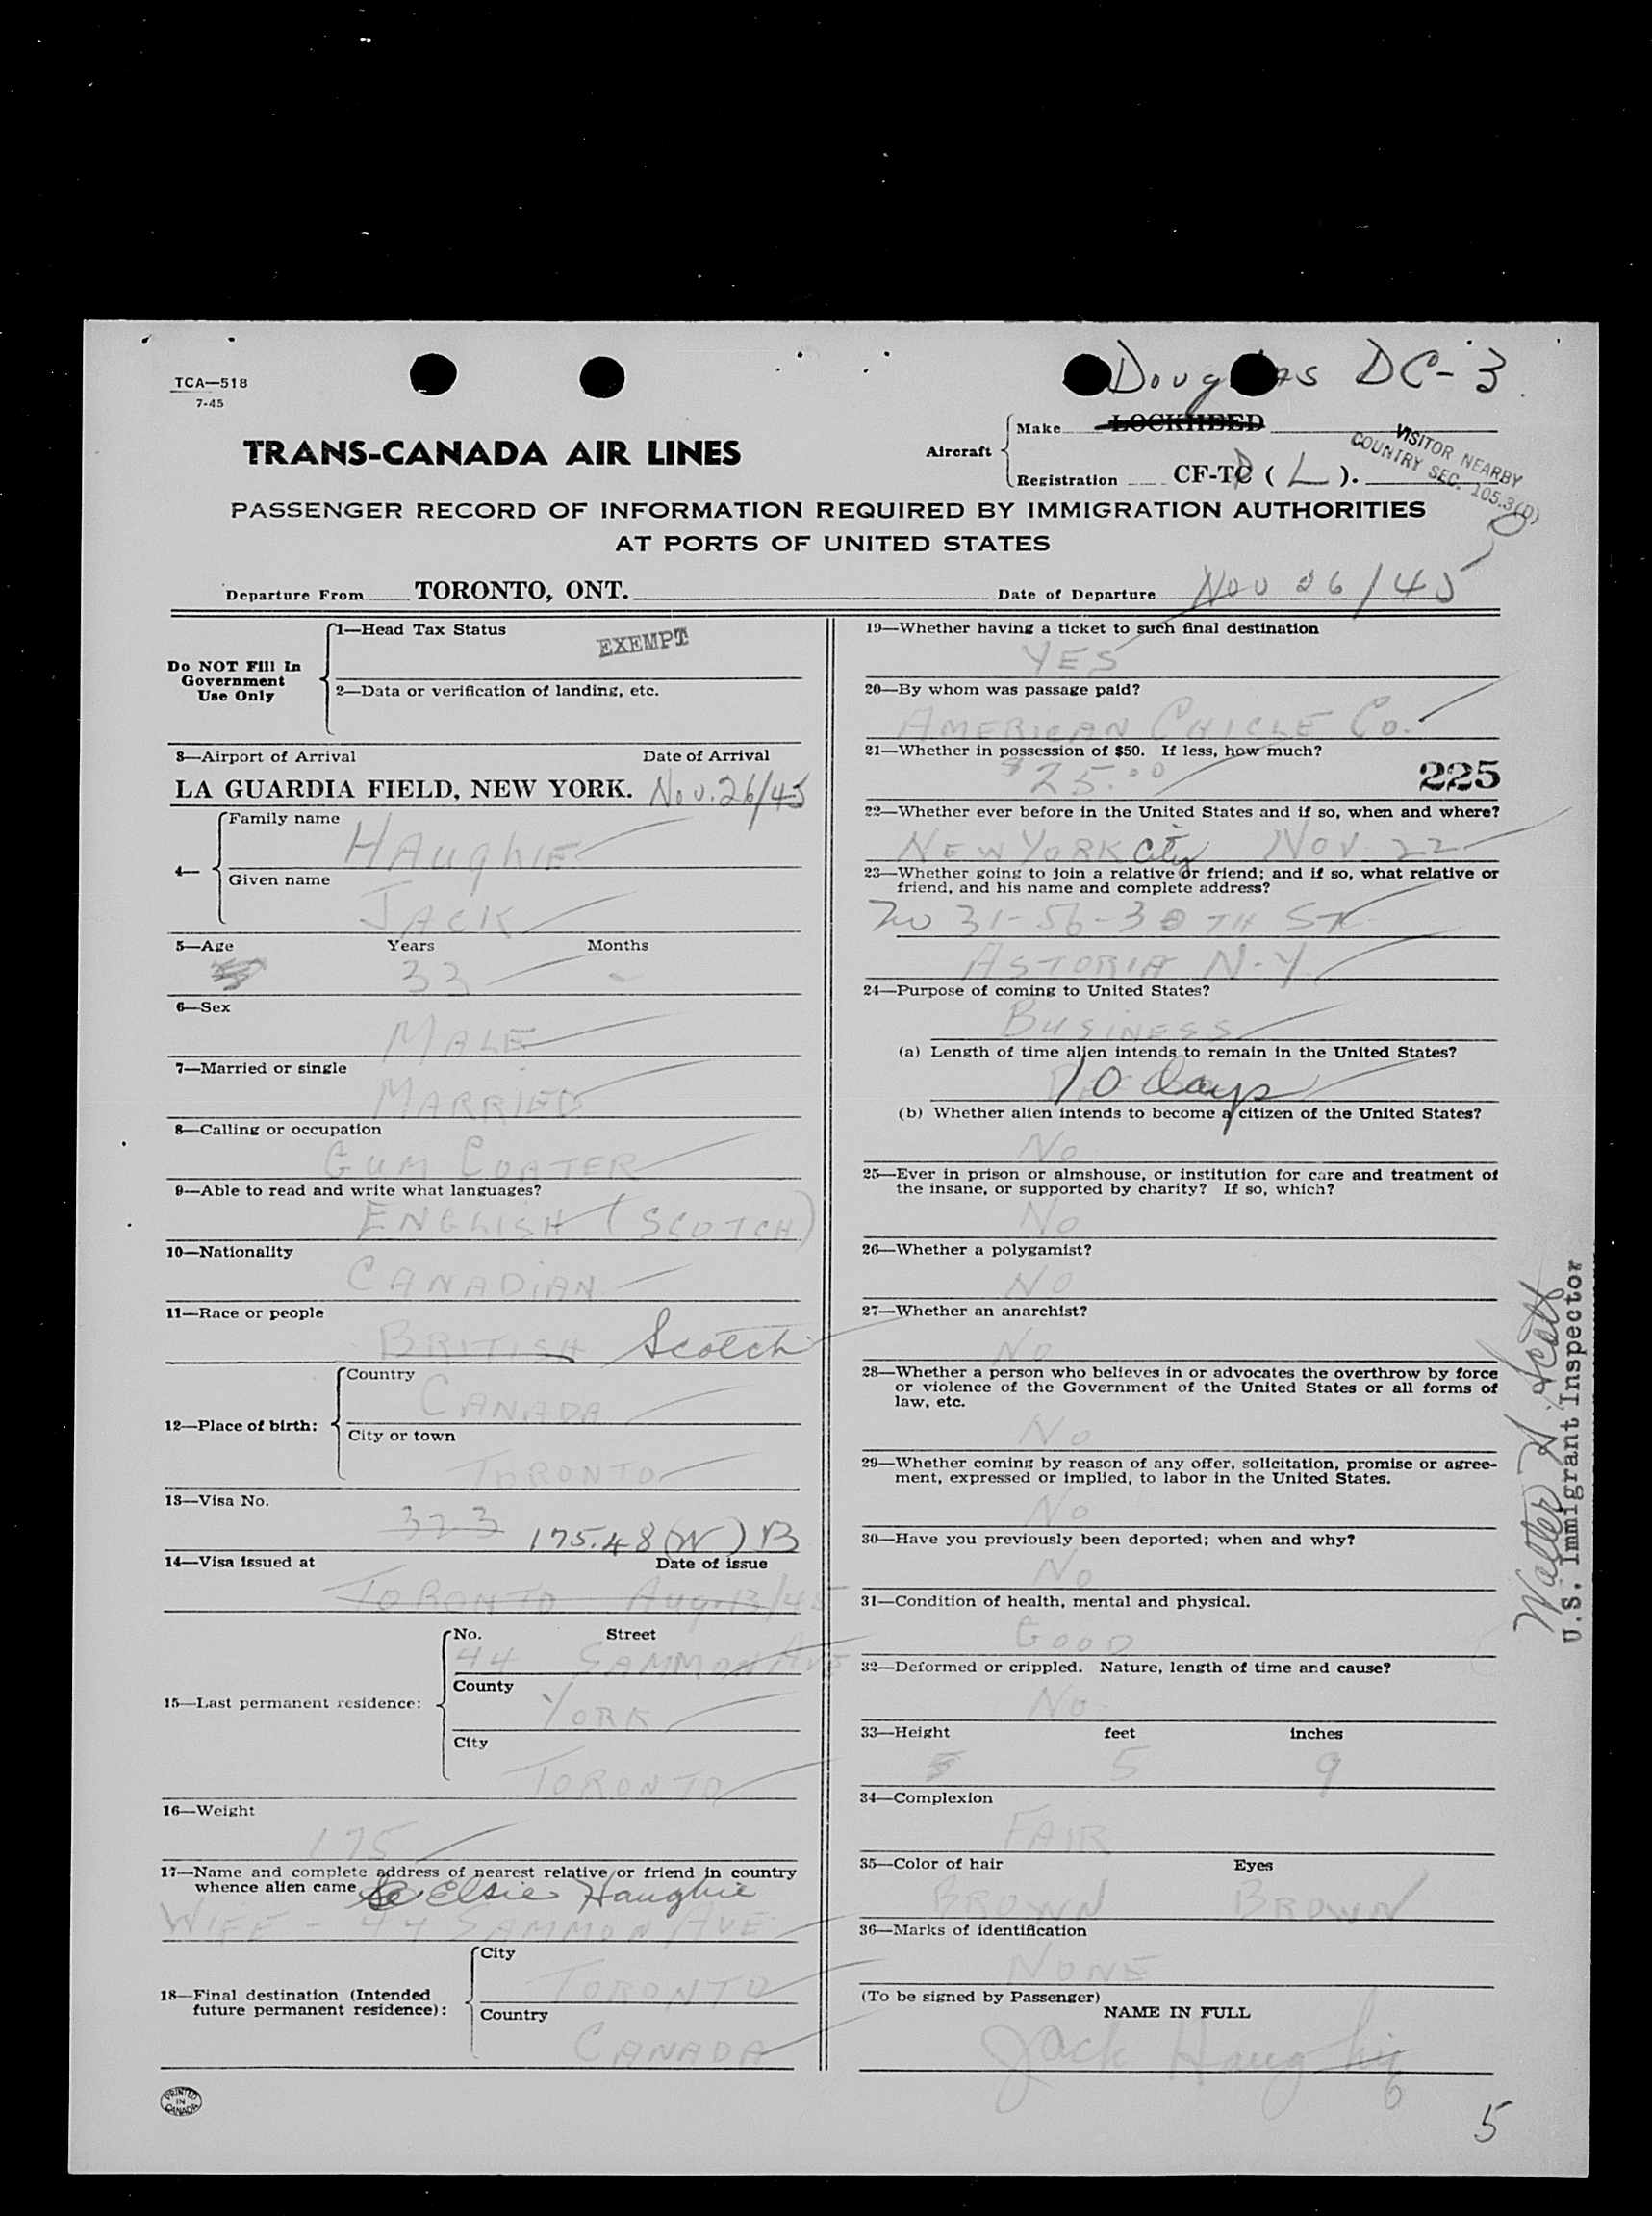 TCA—518
7-45
Douglas DC-3
TRANS-CANADA AIR LINES
Aircraft
Make LOCKHEED
Registration CF-TC ( L ).
VISITOR NEARBY
COUNTRY SEC. 105.3(D)
PASSENGER RECORD OF INFORMATION REQUIRED BY IMMIGRATION AUTHORITIES
AT PORTS OF UNITED STATES
Departure From TORONTO, ONT. Date of Departure Nov 26/45
Do NOT Fill In
Government
Use Only
1—Head Tax Status
EXEMPT
2—Data or verification of landing, etc.
3—Airport of Arrival Date of Arrival
LA GUARDIA FIELD, NEW YORK. Nov. 26/45
4—
Family name
HAUGHIE
Given name
JACK
5—Age Years Months
33 -
6—Sex
MALE
7—Married or single
MARRIED
8—Calling or occupation
GUM COATER
9—Able to read and write what languages?
ENGLISH (SCOTCH)
10—Nationality
CANADIAN
11—Race or people
BRITISH Scotch
12—Place of birth:
Country
CANADA
City or town
TORONTO
13—Visa No.
323 175.48 (W) B
14—Visa issued at Date of issue
TORONTO Aug. 13/45
15—Last permanent residence:
No. Street
44 SAMMON AVE
County
YORK
City
TORONTO
16—Weight
175
17—Name and complete address of nearest relative or friend in country
whence alien came Elsie Haughie
WIFE - 44 SAMMON AVE
18—Final destination (Intended
future permanent residence):
City
TORONTO
Country
CANADA
PRINTED
IN
CANADA
19—Whether having a ticket to such final destination
YES
20—By whom was passage paid?
AMERICAN CHICLE CO.
21—Whether in possession of $50. If less, how much?
$25.00
225
22—Whether ever before in the United States and if so, when and where?
NEW YORK City NOV 22
23—Whether going to join a relative or friend; and if so, what relative or
friend, and his name and complete address?
No 31-56-30 TH ST
ASTORIA N.Y.
24—Purpose of coming to United States?
BUSINESS
(a) Length of time alien intends to remain in the United States?
10 days
(b) Whether alien intends to become a citizen of the United States?
No
25—Ever in prison or almshouse, or institution for care and treatment of
the insane, or supported by charity? If so, which?
No
26—Whether a polygamist?
NO
27—Whether an anarchist?
No
28—Whether a person who believes in or advocates the overthrow by force
or violence of the Government of the United States or all forms of
law, etc.
No
29—Whether coming by reason of any offer, solicitation, promise or agree-
ment, expressed or implied, to labor in the United States.
No
30—Have you previously been deported; when and why?
No
31—Condition of health, mental and physical.
GOOD
32—Deformed or crippled. Nature, length of time and cause?
No.
33—Height feet inches
5 9
34—Complexion
FAIR
35—Color of hair Eyes
BROWN BROWN
36—Marks of identification
NONE
(To be signed by Passenger)
NAME IN FULL
Jack Haughie
Walter H Scott
U.S. Immigrant Inspector
5